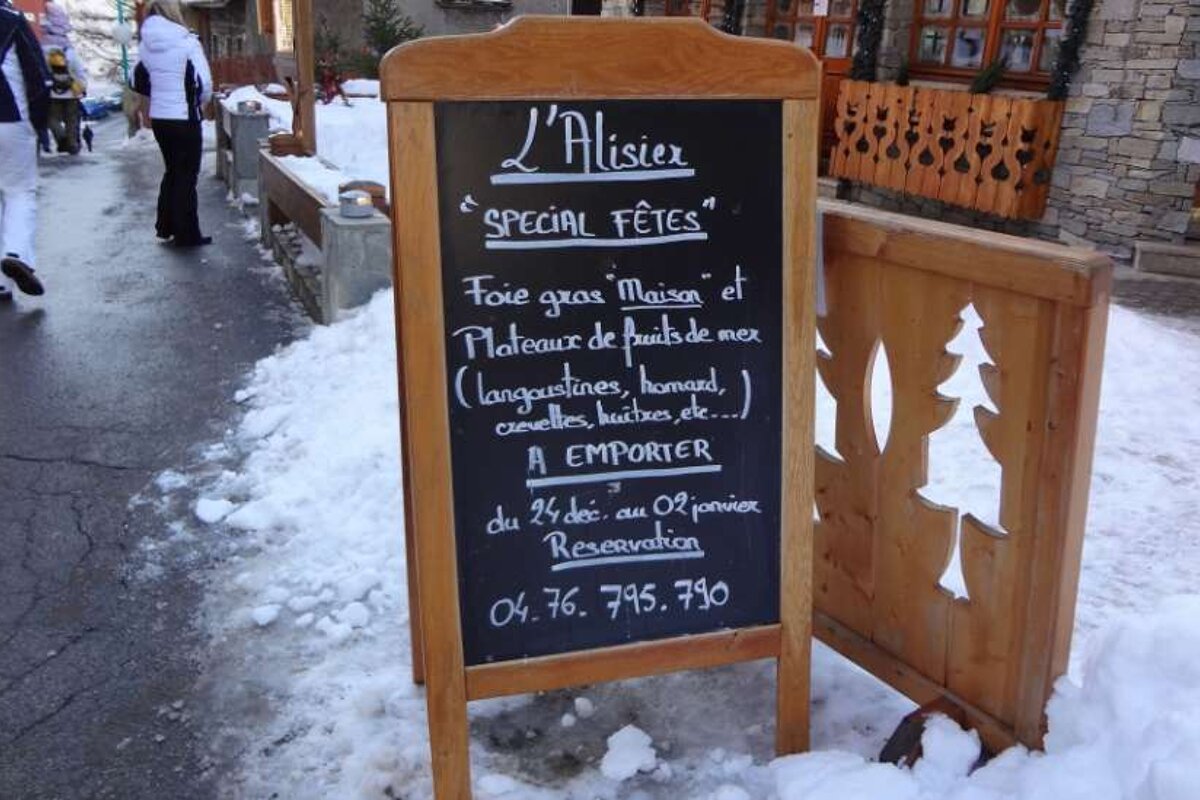 L'Alisier
"SPECIAL FÊTES"
Foie gras "Maison" et
Plateaux de fruits de mer
(langoustines, homard,
crevettes, huîtres, etc...)
A EMPORTER
du 24 déc. au 02 janvier
Reservation
04.76.795.790